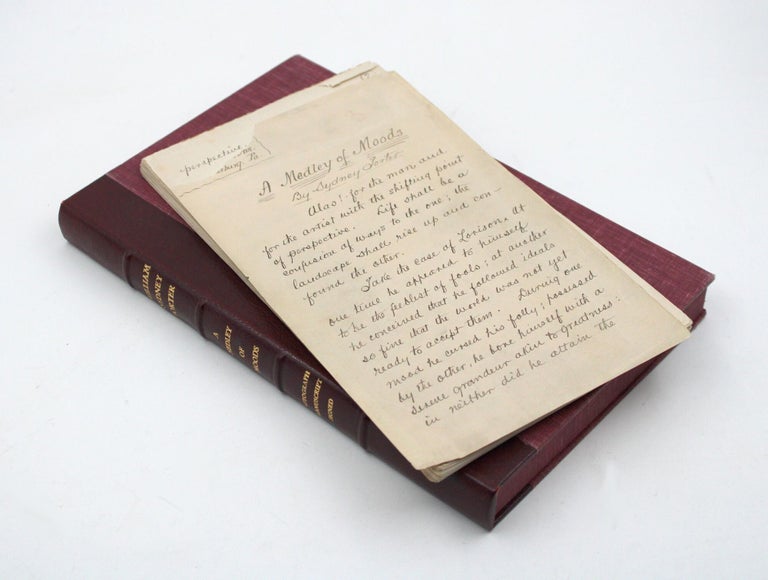 perspective
A Medley of Moods
By Sydney Porter
Alas! for the man and
for the artist with the shifting point
of perspective. Life shall be a
confusion of ways to the one; the
landscape shall rise up and con-
found the other.
Take the case of Lorison. At
one time he appeared to himself
to be the feeblest of fools; at another
he conceived that he followed ideals
so fine that the world was not yet
ready to accept them. During one
mood he cursed his folly; possessed
by the other, he bore himself with a
serene grandeur akin to greatness:
in neither did he attain the
WILLIAM
SYDNEY
PORTER
A
MEDLEY
OF
MOODS
AUTOGRAPH
MANUSCRIPT
SIGNED